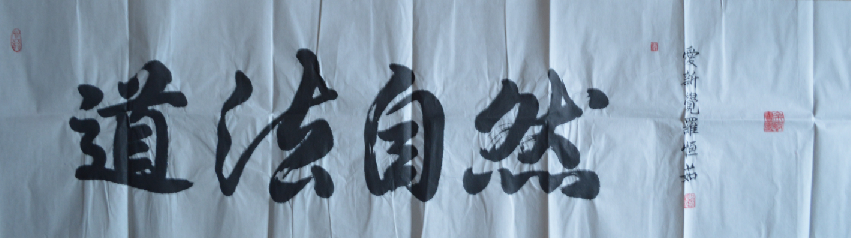 道法自然
愛新覺羅恒茹